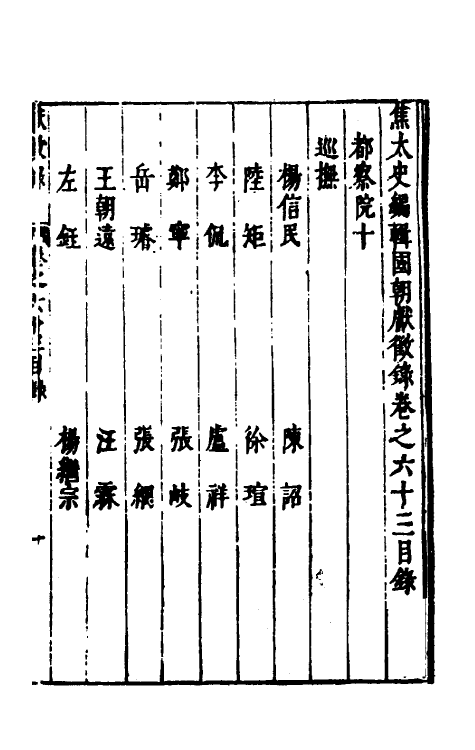 焦太史編輯國朝獻徵錄卷之六十三目錄
都察院十
巡撫
楊信民 陳詔
陸矩 徐瑄
李侃 盧祥
鄭寧 張岐
岳璿 張綱
王朝遠 汪霖
左鈺 楊繼宗